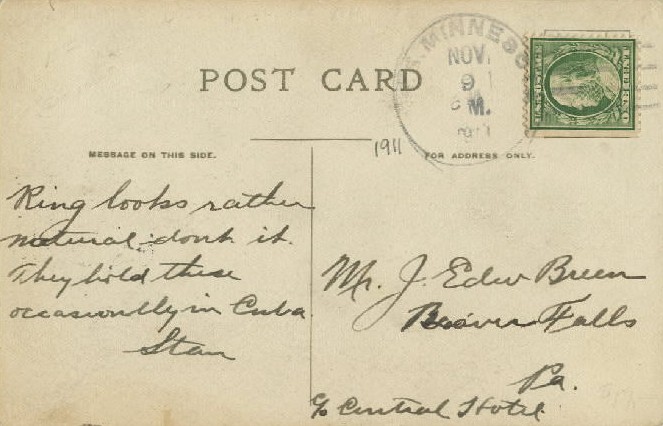 POST CARD
MINNESO
NOV.
9
M.
1911
MESSAGE ON THIS SIDE.
FOR ADDRESS ONLY.
Ring looks rather
natural dont it.
They hold these
occasionally in Cuba
Stan
Mr. J. Edw Breen
Beaver Falls
Pa.
c/o Central Hotel